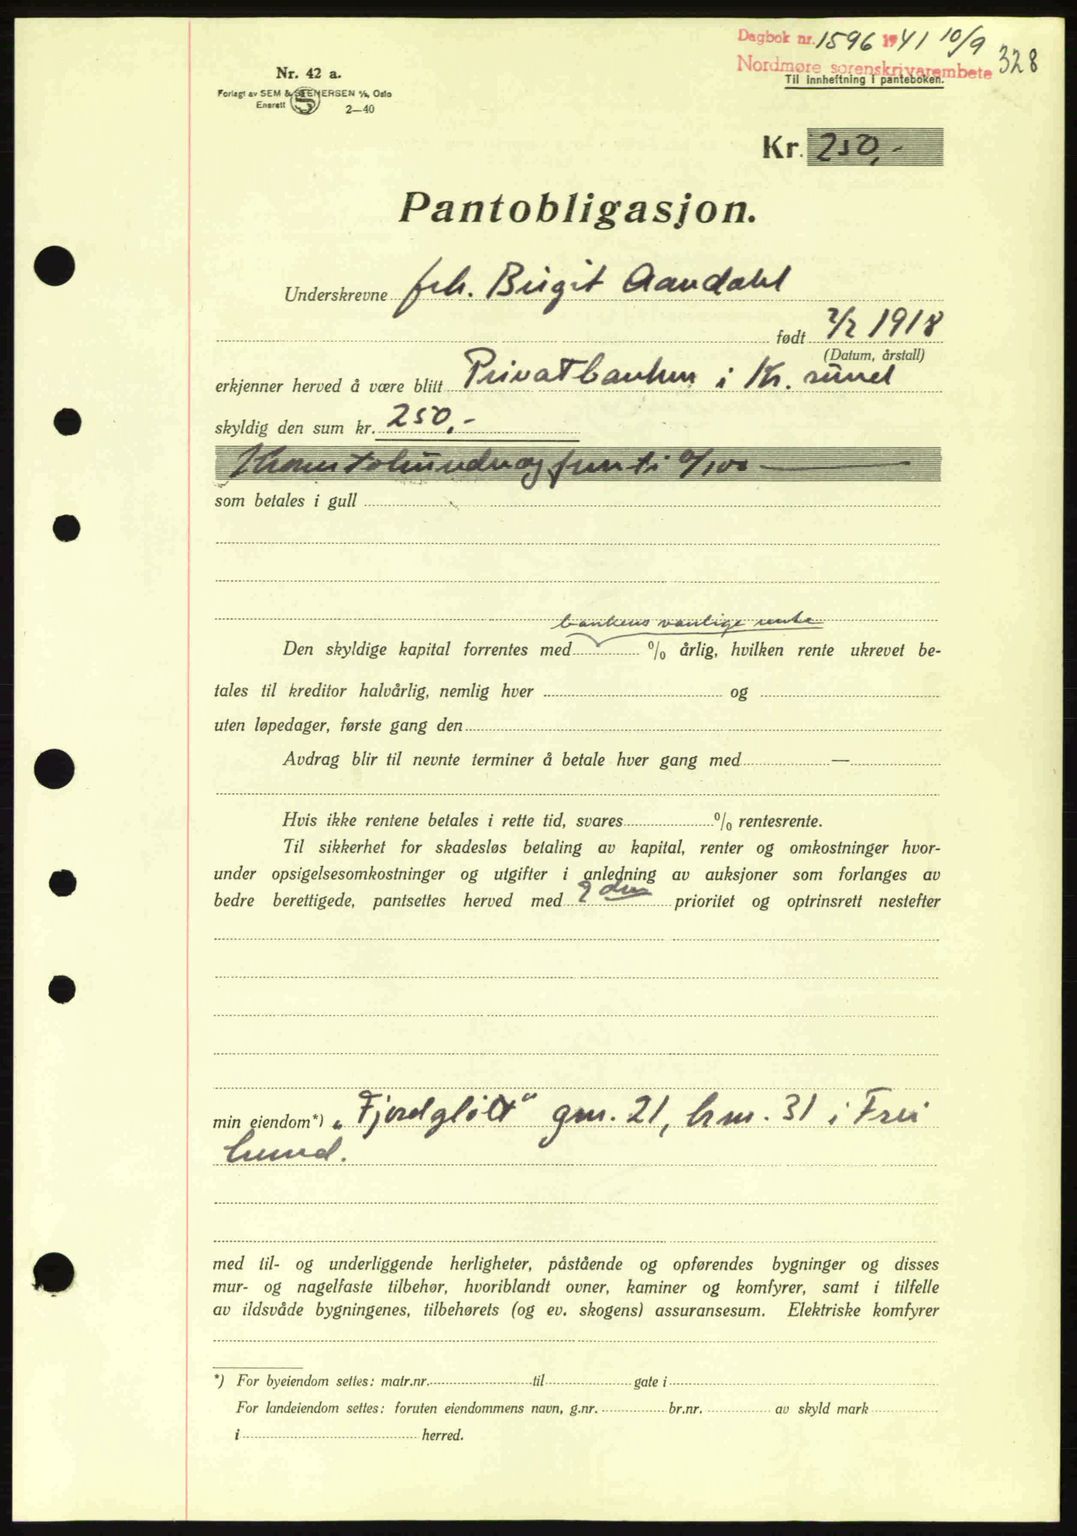 Dagbok nr. 1596 1941 10/9
328
Nordmøre sorenskrivarembete
Til innheftning i panteboken.
Nr. 42 a.
Forlagt av SEM & STENERSEN A/S, Oslo
Enerett
2—40
Kr. 250,-
Pantobligasjon.
Underskrevne frk. Birgit Aandahl
født 2/2 1918
(Datum, årstall)
erkjenner herved å være blitt Privatbanken i Kr.sund
skyldig den sum kr. 250,-
Kroner tohundreogfemti 0/100
som betales i gull
bankens vanlige rente
Den skyldige kapital forrentes med % årlig, hvilken rente ukrevet be-
tales til kreditor halvårlig, nemlig hver og
uten løpedager, første gang den
Avdrag blir til nevnte terminer å betale hver gang med —
Hvis ikke rentene betales i rette tid, svares % rentesrente.
Til sikkerhet for skadesløs betaling av kapital, renter og omkostninger hvor-
under opsigelsesomkostninger og utgifter i anledning av auksjoner som forlanges av
bedre berettigede, pantsettes herved med prioritet og optrinsrett nestefter
min eiendom*) „Fjordgløtt" gnr. 21, brnr. 31 i Frei
med til- og underliggende herligheter, påstående og opførendes bygninger og disses
mur- og nagelfaste tilbehør, hvoriblandt ovner, kaminer og komfyrer, samt i tilfelle
av ildsvåde bygningenes, tilbehørets (og ev. skogens) assuransesum. Elektriske komfyrer
*) For byeiendom settes: matr.nr. til gate i
For landeiendom settes: foruten eiendommens navn, g.nr. br.nr. av skyld mark
i herred.